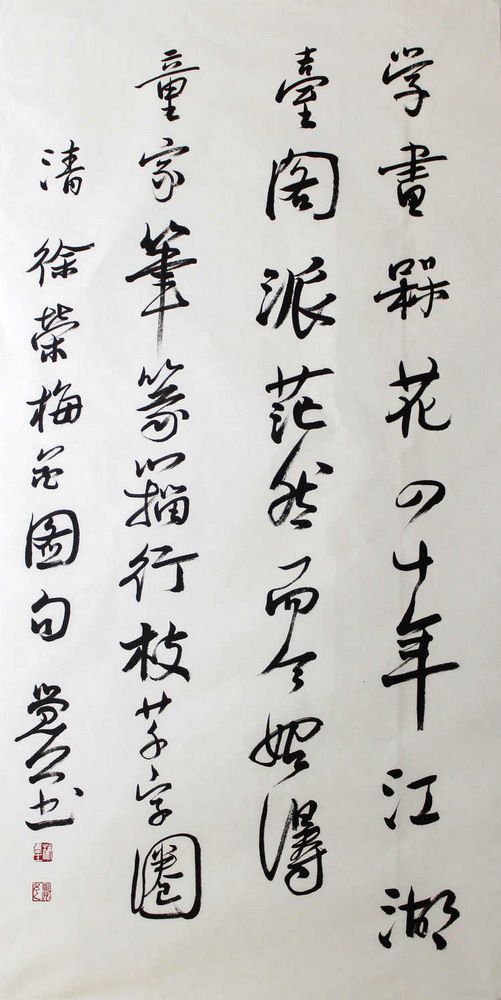 学畫槑花四十年江湖
臺阁派茫然而今始得
童家筆篆籀行枝草字圈
清 徐榮梅花图句 书